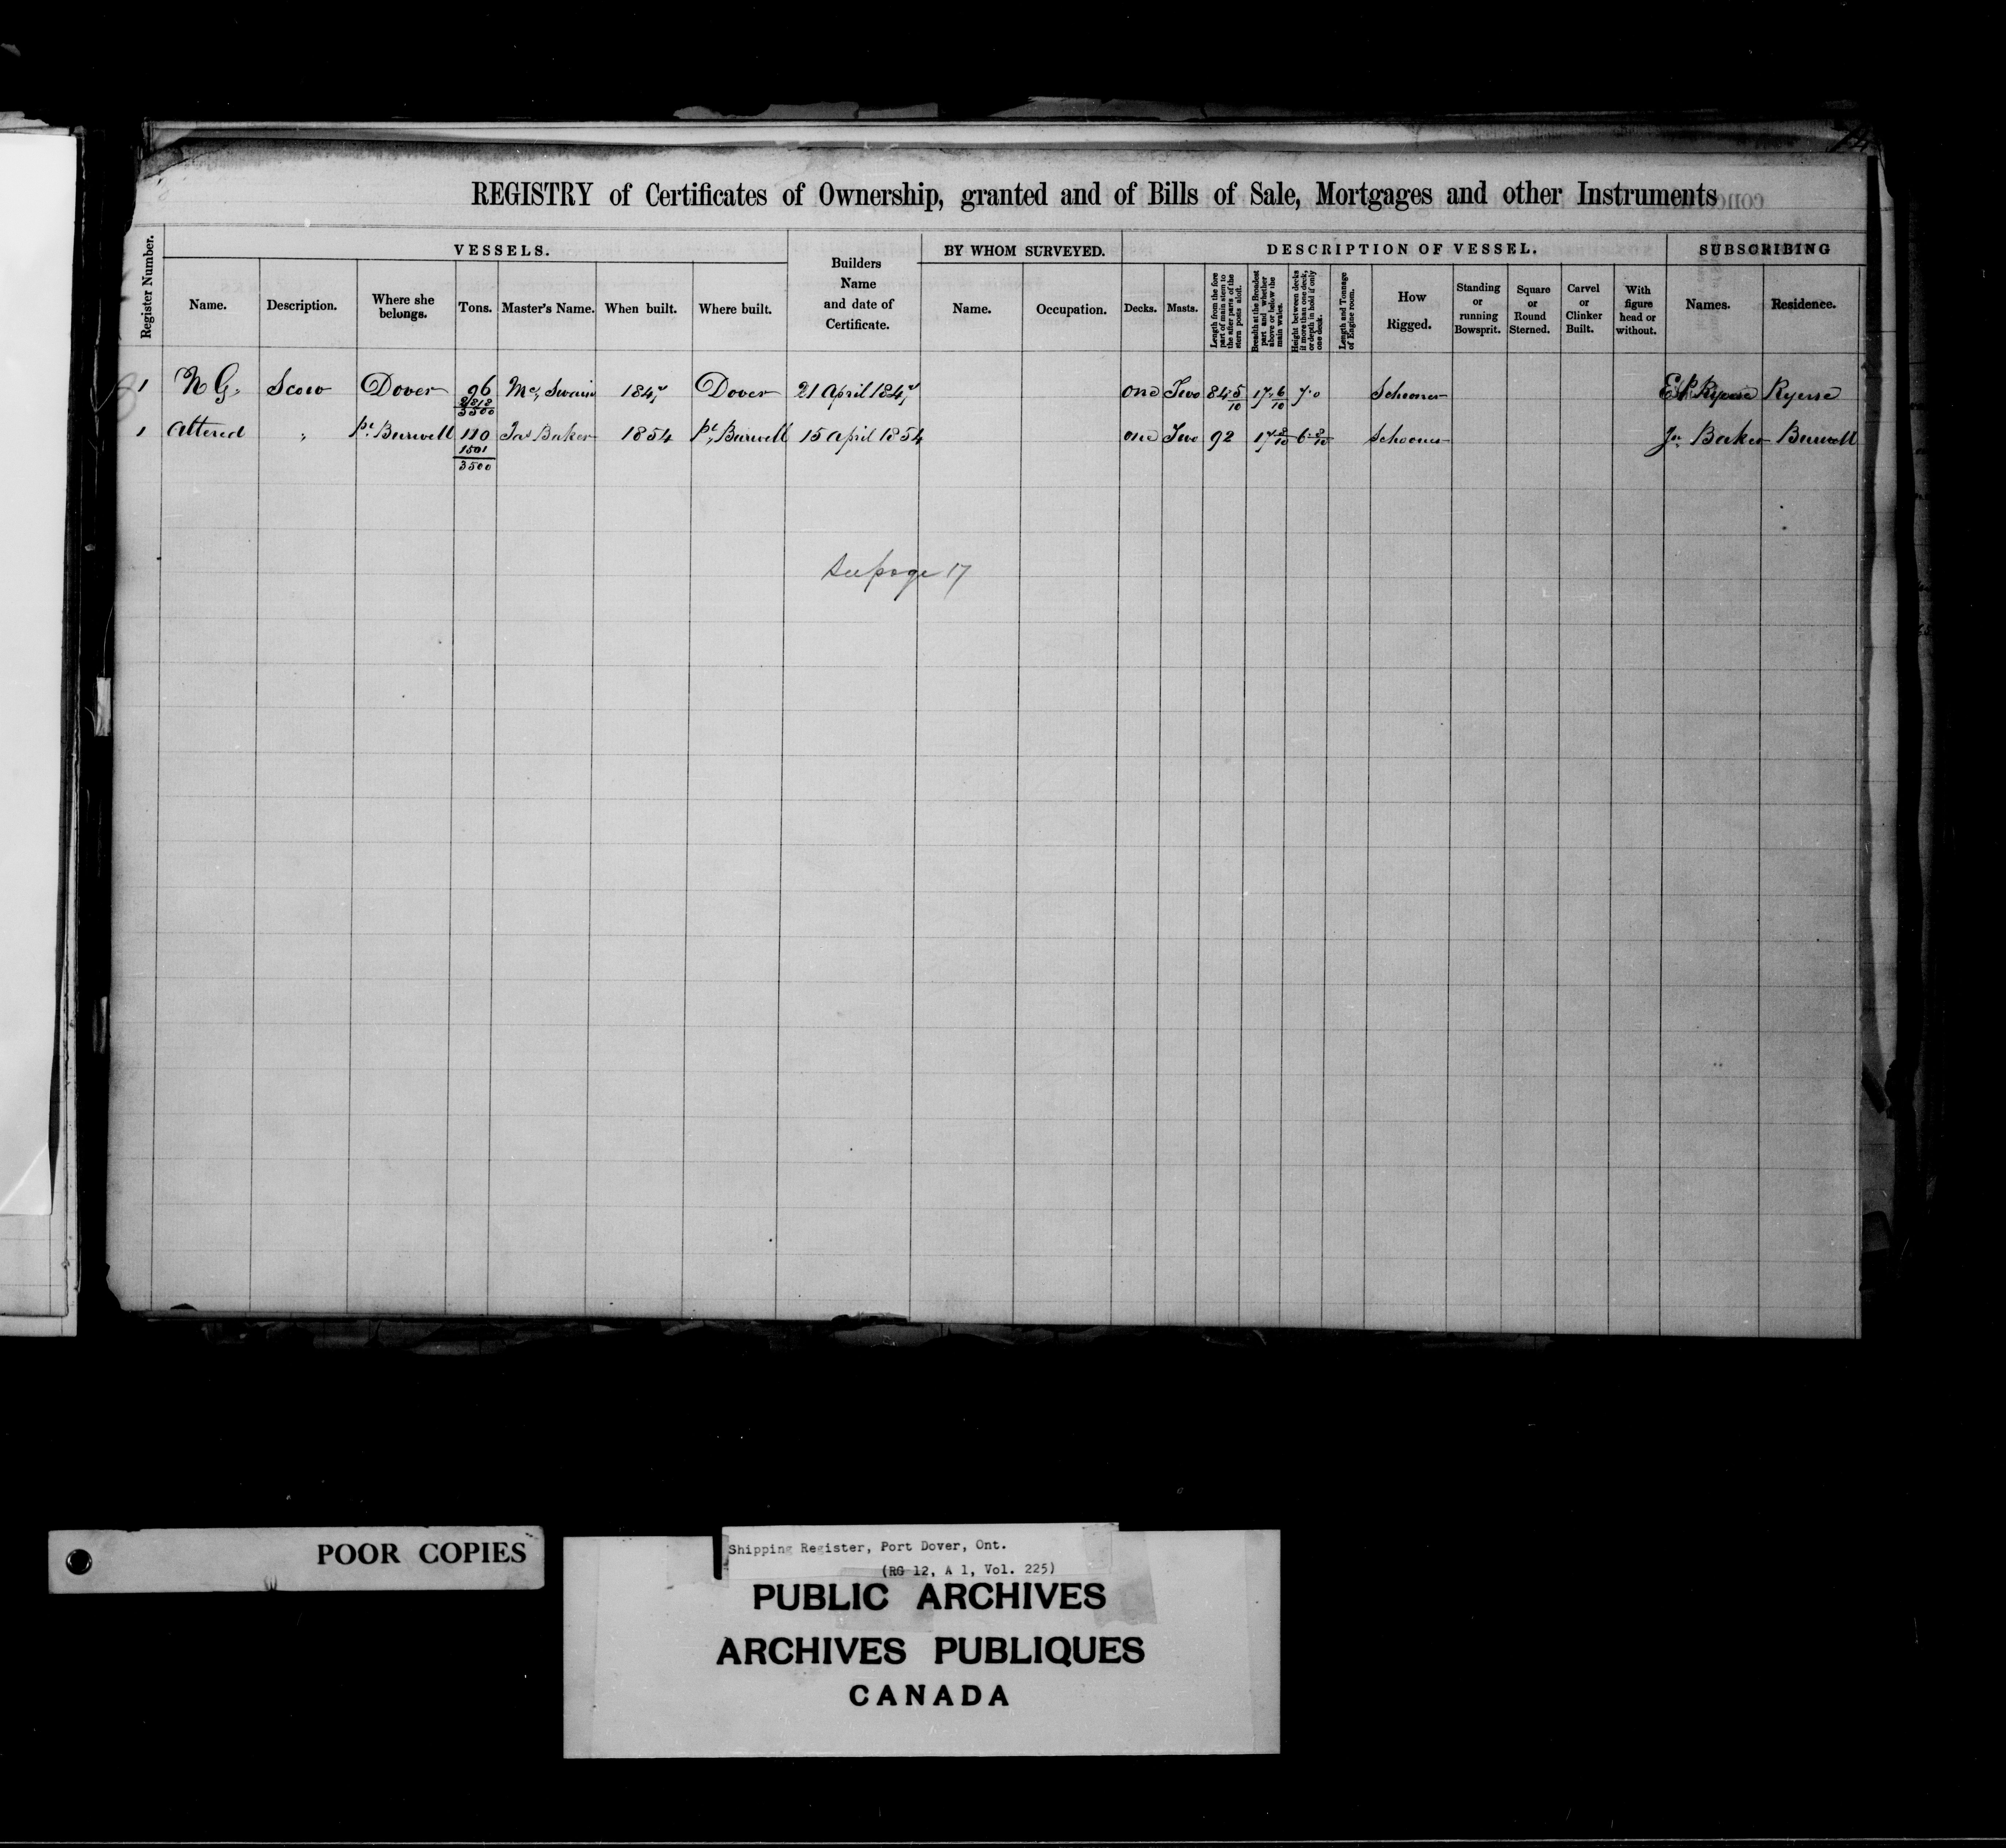 REGISTRY of Certificates of Ownership, granted and of Bills of Sale, Mortgages and other Instruments
Register Number.
VESSELS.
Name.
Description.
Where she belongs.
Tons.
Master's Name.
When built.
Where built.
Builders
Name
and date of
Certificate.
BY WHOM SURVEYED.
Name.
Occupation.
DESCRIPTION OF VESSEL.
Decks.
Masts.
Length from the fore part of main stem to the after parts of the stern posts aloft.
Breadth at the Broadest part and whether above or below the main wales.
Height between decks if more than one deck, or depth in hold if only one deck.
Length and Tonnage of Engine room.
How Rigged.
Standing or running Bowsprit.
Square or Round Sterned.
Carvel or Clinker Built.
With figure head or without.
SUBSCRIBING
Names.
Residence.
1 N G. Scow Dover 96 Mc Swain Dover 21 April One Two 84 5/10 17 6/10 7.0 Schooner Ryerse Ryerse
1 Altered " Pt. Burwell 110 1501/3500 Jas Baker 1854 Pt. Burwell 15 April 1854 One Two 92 17 8/10 Schooner Baker Burwell
See page 17
POOR COPIES
Shipping Register, Port Dover, Ont.
(RG 12, A 1, Vol. 225)
PUBLIC ARCHIVES
ARCHIVES PUBLIQUES
CANADA